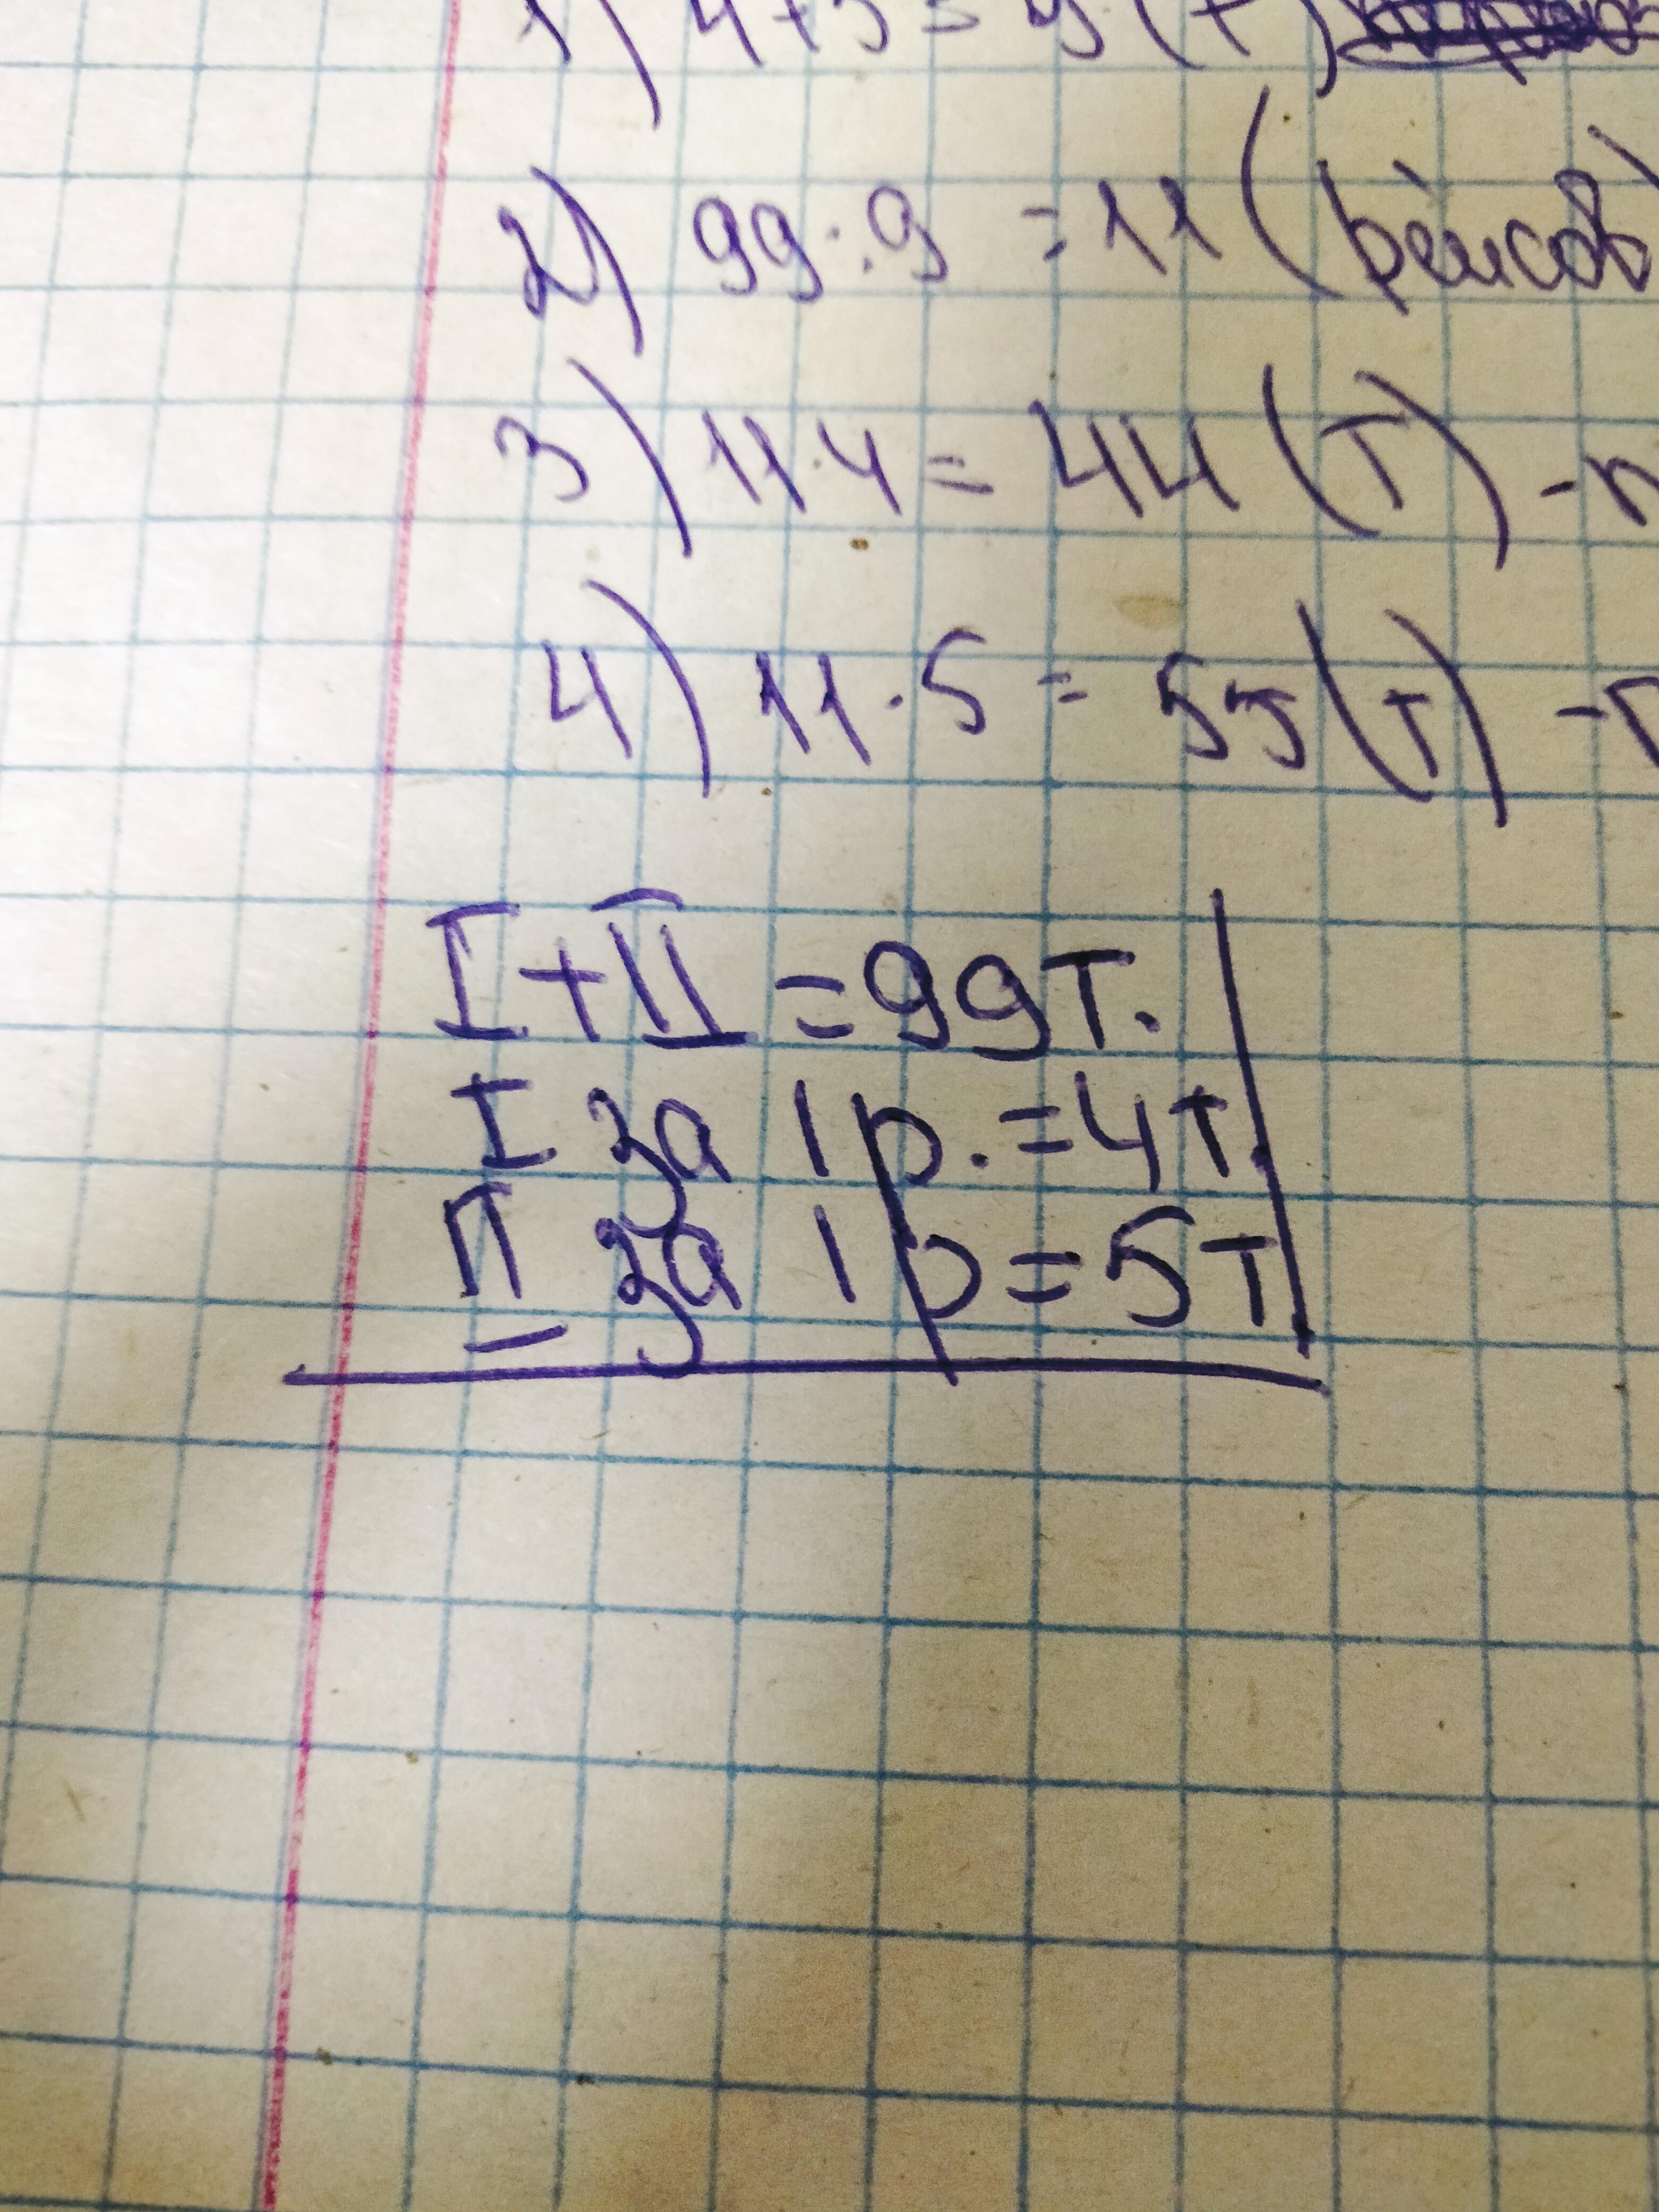 1) 4+5=9(т)
2) 99:9=11(рейсов)
3) 11·4=44(т)-п
4) 11·5=55(т)-п
I+II=99т.
I за 1р.=4т.
II за 1р=5т.